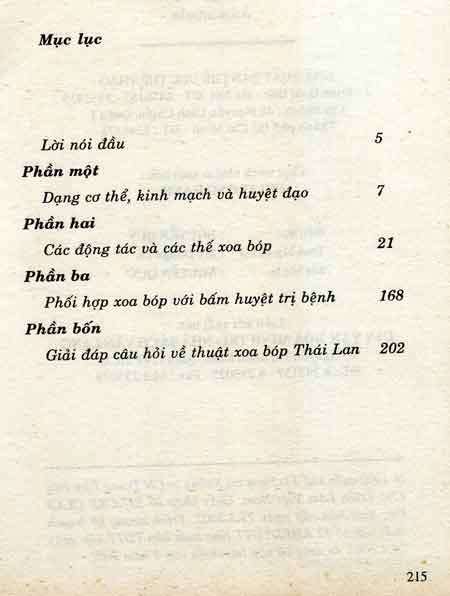 Mục lục
Lời nói đầu 5
Phần một
Dạng cơ thể, kinh mạch và huyệt đạo 7
Phần hai
Các động tác và các thế xoa bóp 21
Phần ba
Phối hợp xoa bóp với bấm huyệt trị bệnh 168
Phần bốn
Giải đáp câu hỏi về thuật xoa bóp Thái Lan 202
215